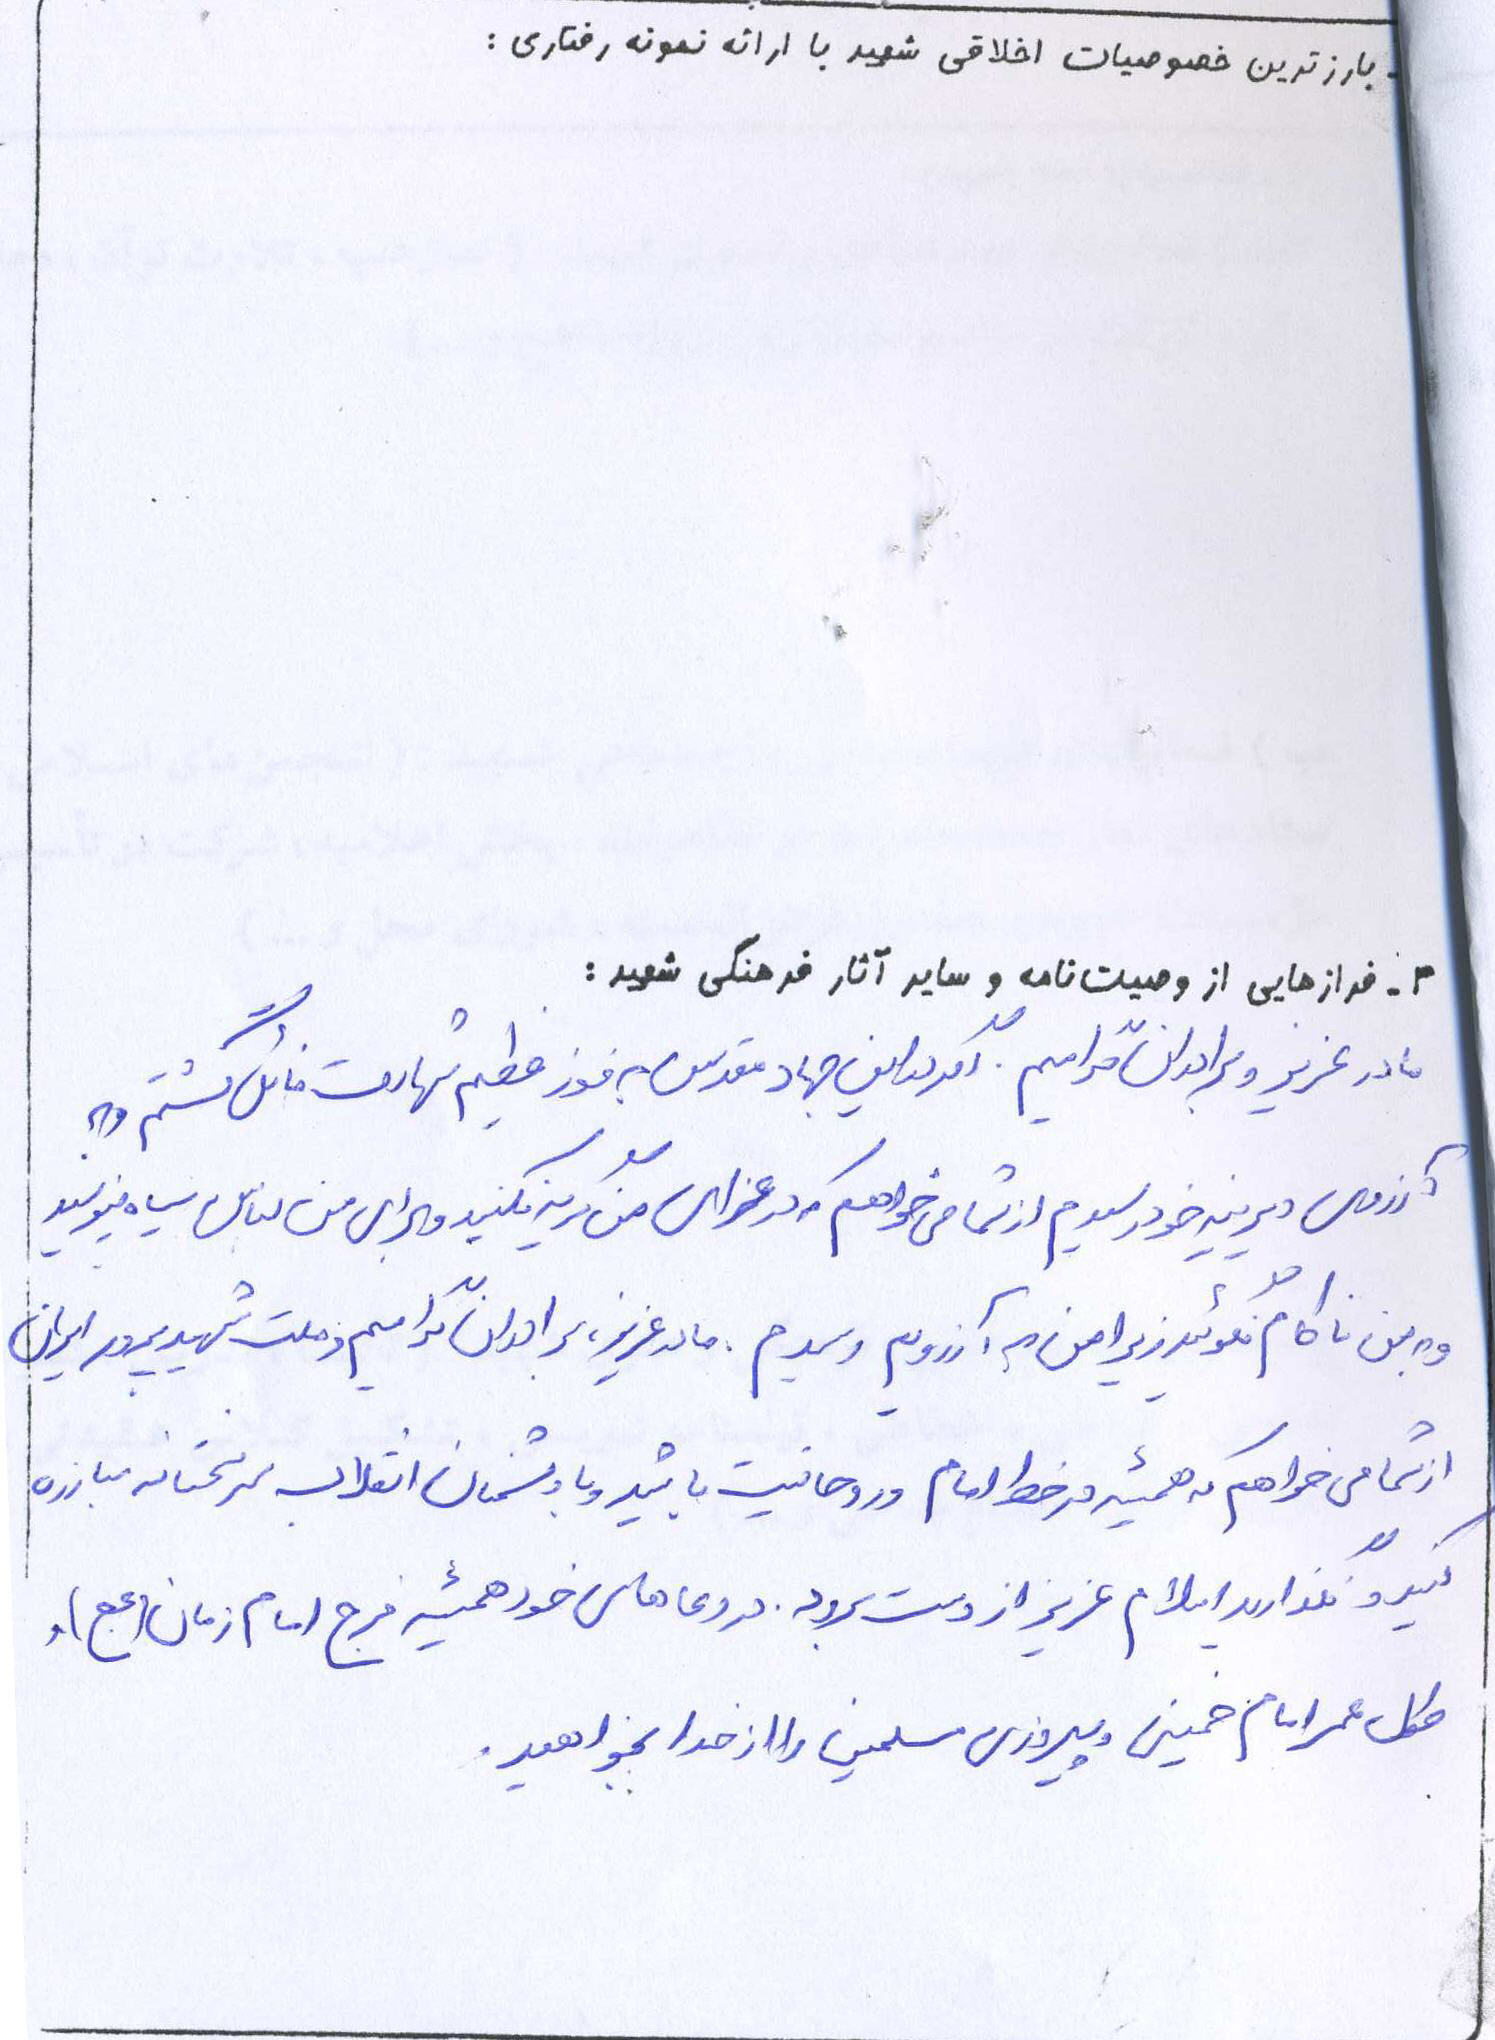 بارزترین خصوصیات اخلاقی شهید با ارائه نمونه رفتاری :
۳ ـ فرازهایی از وصیت‌نامه و سایر آثار فرهنگی شهید :
مادر عزیز و برادران گرامیم . اگر در این جهاد مقدس به فوز عظیم شهادت نائل گشتم و به
آرزوی دیرینه خود رسیدم از شما می‌خواهم که در عزای من گریه نکنید و برای من لباس سیاه نپوشید
و به من ناکام نگوئید زیرا من به آرزویم رسیدم . مادر عزیز، برادران گرامیم و ملت شهیدپرور ایران
از شما می‌خواهم که همیشه در خط امام و روحانیت باشید و با دشمنان انقلاب سرسختانه مبارزه
کنید و نگذارید اسلام عزیز از دست برود . در دعاهای خود همیشه فرج امام زمان (عج) و
طول عمر امام خمینی و پیروزی مسلمین را از خدا بخواهید .